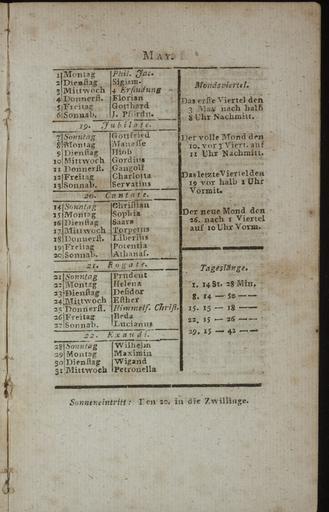 May.
1 Montag Phil. Jac.
2 Dienstag Sigism.
3 Mittwoch ✝ Erfindung
4 Donnerst. Florian
5 Freitag Gotthard
6 Sonnab. J. Pfortn.
19. Jubilate.
7 Sonntag Gottfried
8 Montag Manasse
9 Dienstag Hiob
10 Mittwoch Gordius
11 Donnerst. Gangolf
12 Freitag Charlotta
13 Sonnab. Servatius
20. Cantate.
14 Sonntag Christian
15 Montag Sophia
16 Dienstag Saara
17 Mittwoch Torpetus
18 Donnerst. Liberius
19 Freitag Potentia
20 Sonnab. Athanas.
21. Rogate.
21 Sonntag Prudent
22 Montag Helena
23 Dienstag Desidor
24 Mittwoch Esther
25 Donnerst. Himmelf. Christi.
26 Freitag Beda
27 Sonnab. Lucianus
22. Exaudi.
28 Sonntag Wilhelm
29 Montag Maximin
30 Dienstag Wigand
31 Mittwoch Petronella
Mondsviertel.
Das erste Viertel den
3 May nach halb
8 Uhr Nachmitt.
Der volle Mond den
10. vor 3 Viert. auf
11 Uhr Nachmitt.
Das letzte Viertel den
19 vor halb 1 Uhr
Vormit.
Der neue Mond den
26. nach 1 Viertel
auf 10 Uhr Vorm.
Tageslänge.
1. 14 St. 28 Min.
8. 14 — 50 —
15. 15 — 18 —
22. 15 — 26 —
29. 15 — 42 —
Sonneneintritt: Den 20. in die Zwillinge.